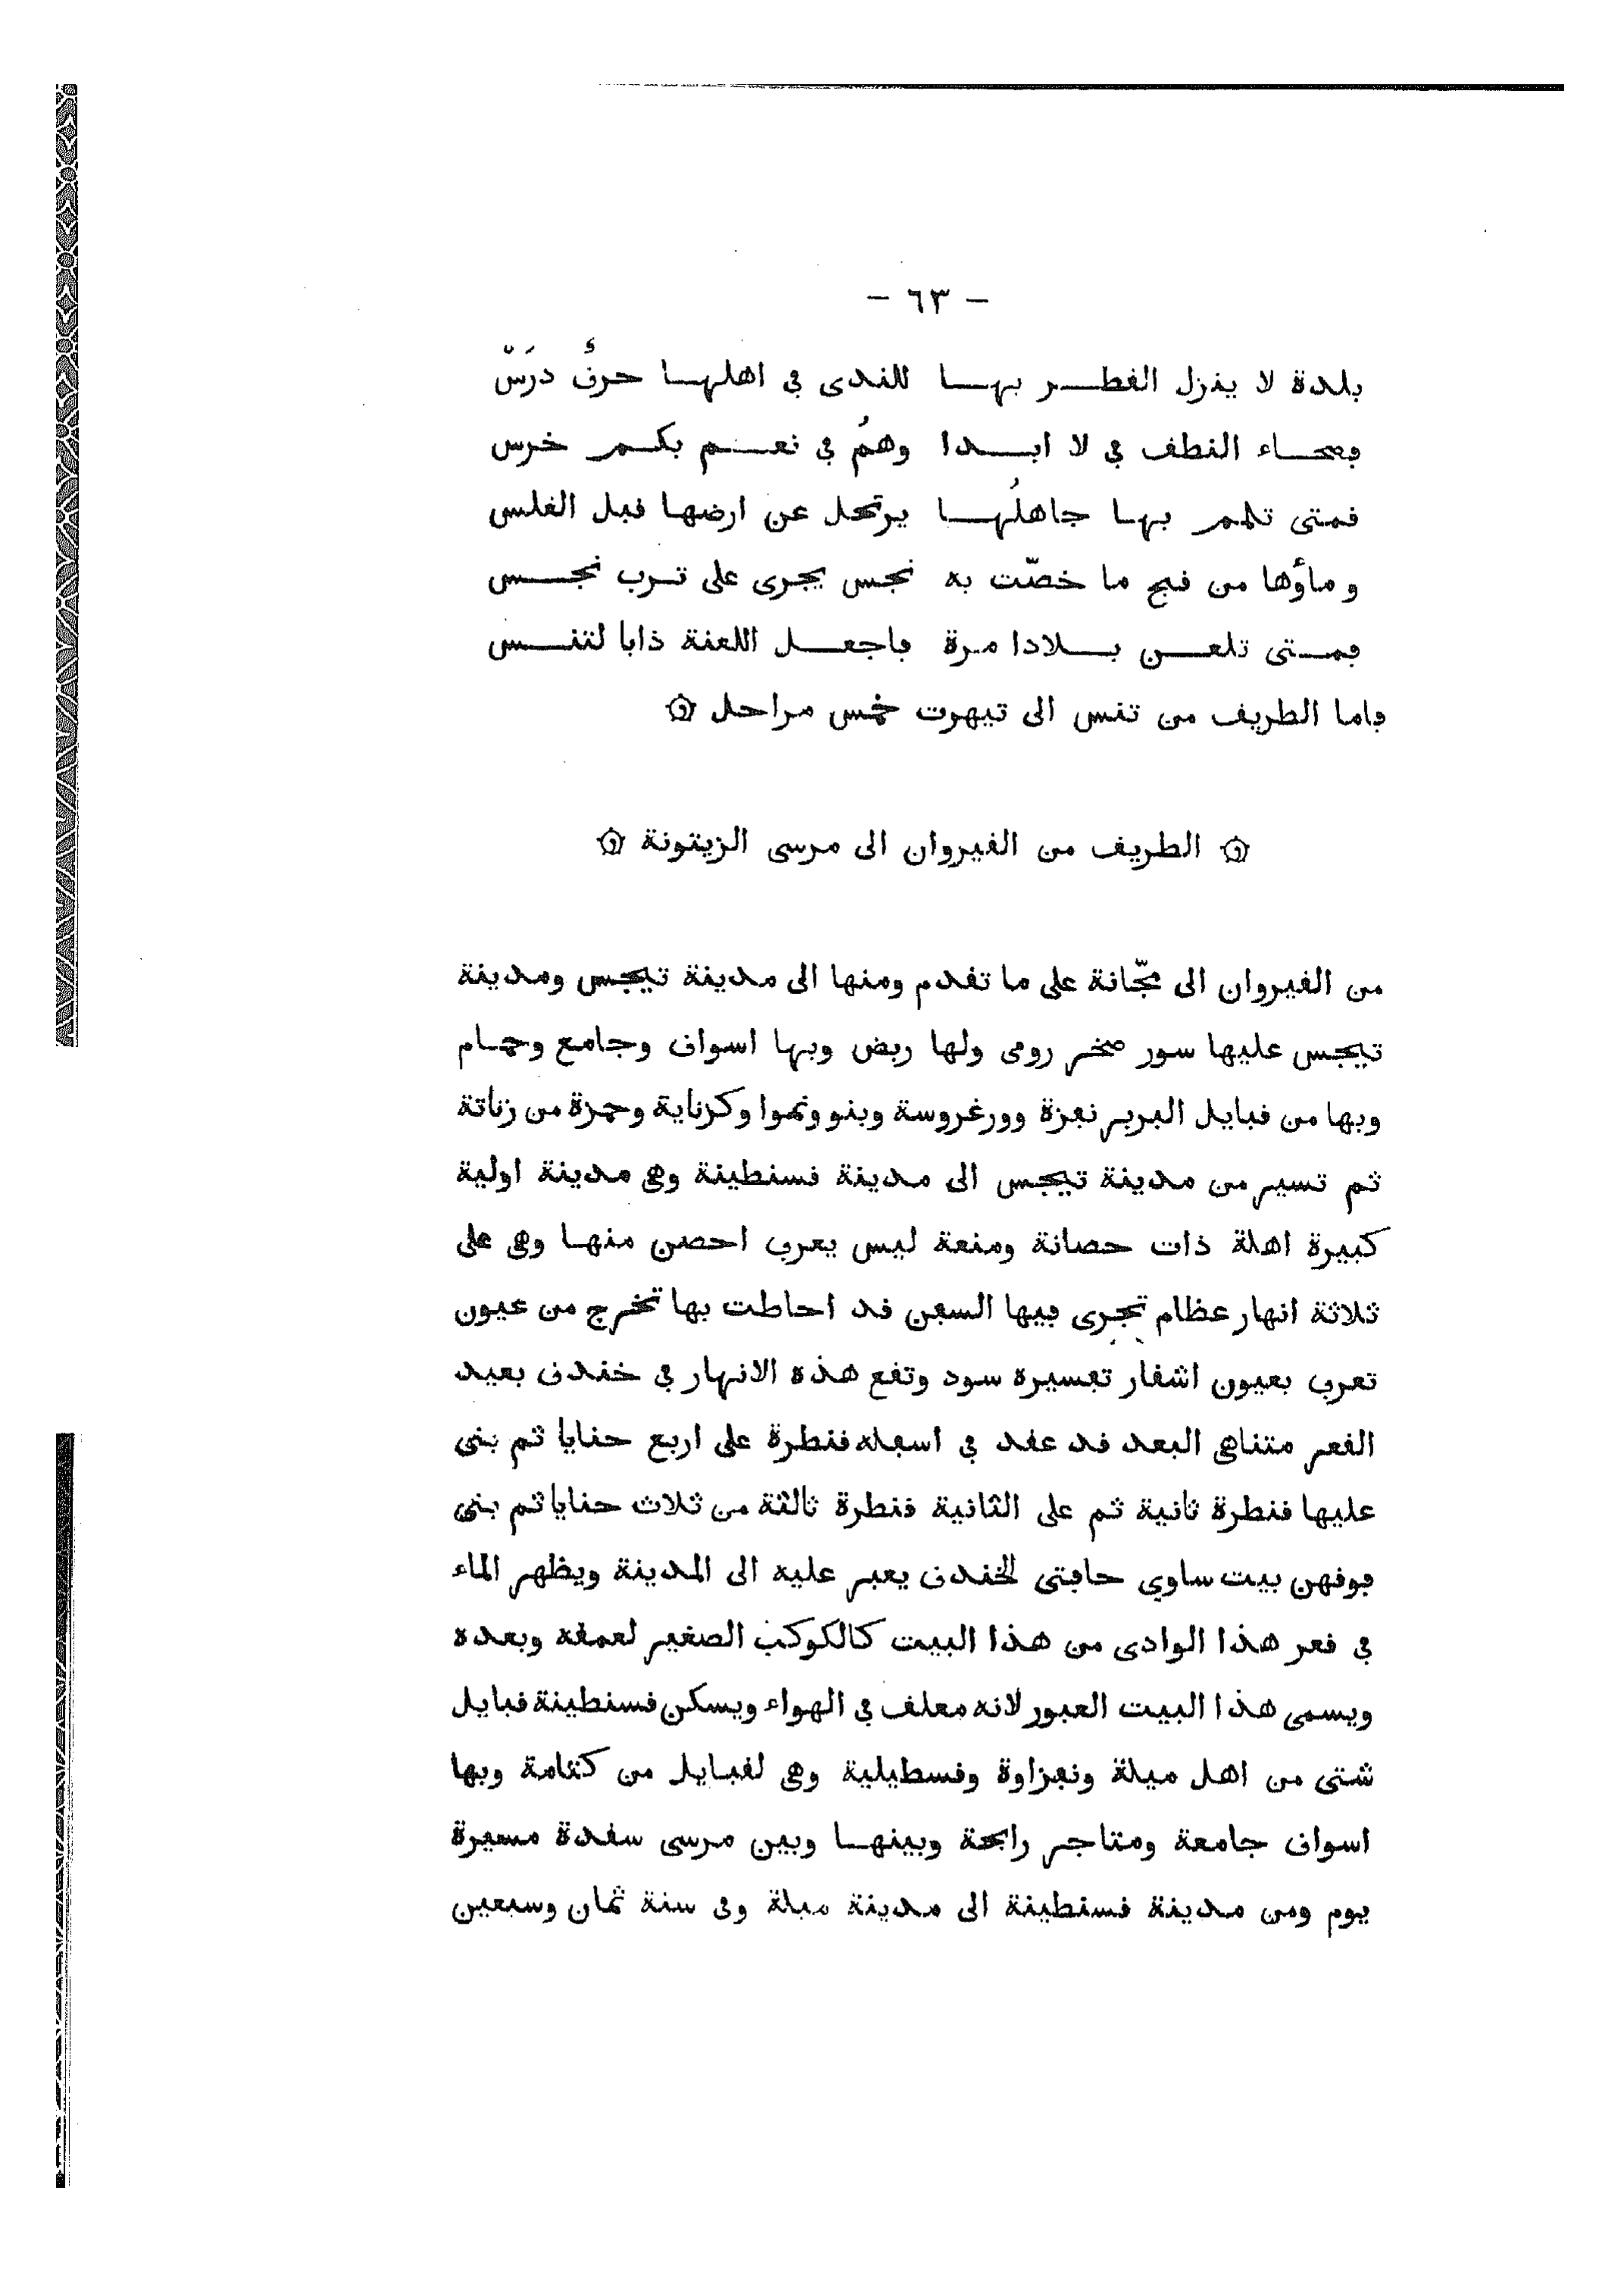 - ٦٣ -
بلدة لا ينزل القطر بها للندى في اهلها حرفٌ دَرَسْ
فصحاء النطق في لا ابدا وهمُ في نعم بكم خرس
فمتى تلمم بها جاهلُها يرتحل عن ارضها قبل الغلس
وماؤها من قبح ما خصّت به نجس يجرى على ترب نجس
فمتى تلعن بلادا مرة فاجعل اللعنة دابا لتنس
فاما الطريق من تنس الى تيهرت خمس مراحل
الطريق من القيروان الى مرسى الزيتونة
من القيروان الى مجّانة على ما تقدم ومنها الى مدينة تيجس ومدينة
تيجس عليها سور صخر رومى ولها ربض وبها اسواق وجامع وحمام
وبها من قبايل البربر نفزة وورغروسة وبنو ونموا وكزناية وحمزة من زناتة
ثم تسير من مدينة تيجس الى مدينة قسنطينة وهى مدينة اولية
كبيرة اهلة ذات حصانة ومنعة ليس يعرف احصن منها وهى على
ثلاثة انهار عظام تجرى فيها السفن قد احاطت بها تخرج من عيون
تعرف بعيون اشقار تفسيره سود وتقع هذه الانهار في خندق بعيد
القعر متناهى البعد قد عقد في اسفله قنطرة على اربع حنايا ثم بنى
عليها قنطرة ثانية ثم على الثانية قنطرة ثالثة من ثلاث حنايا ثم بنى
فوقهن بيت ساوى حافتى الخندق يعبر عليه الى المدينة ويظهر الماء
في قعر هذا الوادى من هذا البيت كالكوكب الصغير لعمقه وبعده
ويسمى هذا البيت العبور لانه معلق في الهواء ويسكن قسنطينة قبايل
شتى من اهل ميلة ونفزاوة وقسطيلية وهى لقبايل من كتامة وبها
اسواق جامعة ومتاجر رابحة وبينها وبين مرسى سقدة مسيرة
يوم ومن مدينة قسنطينة الى مدينة ميلة وفى سنة ثمان وسبعين